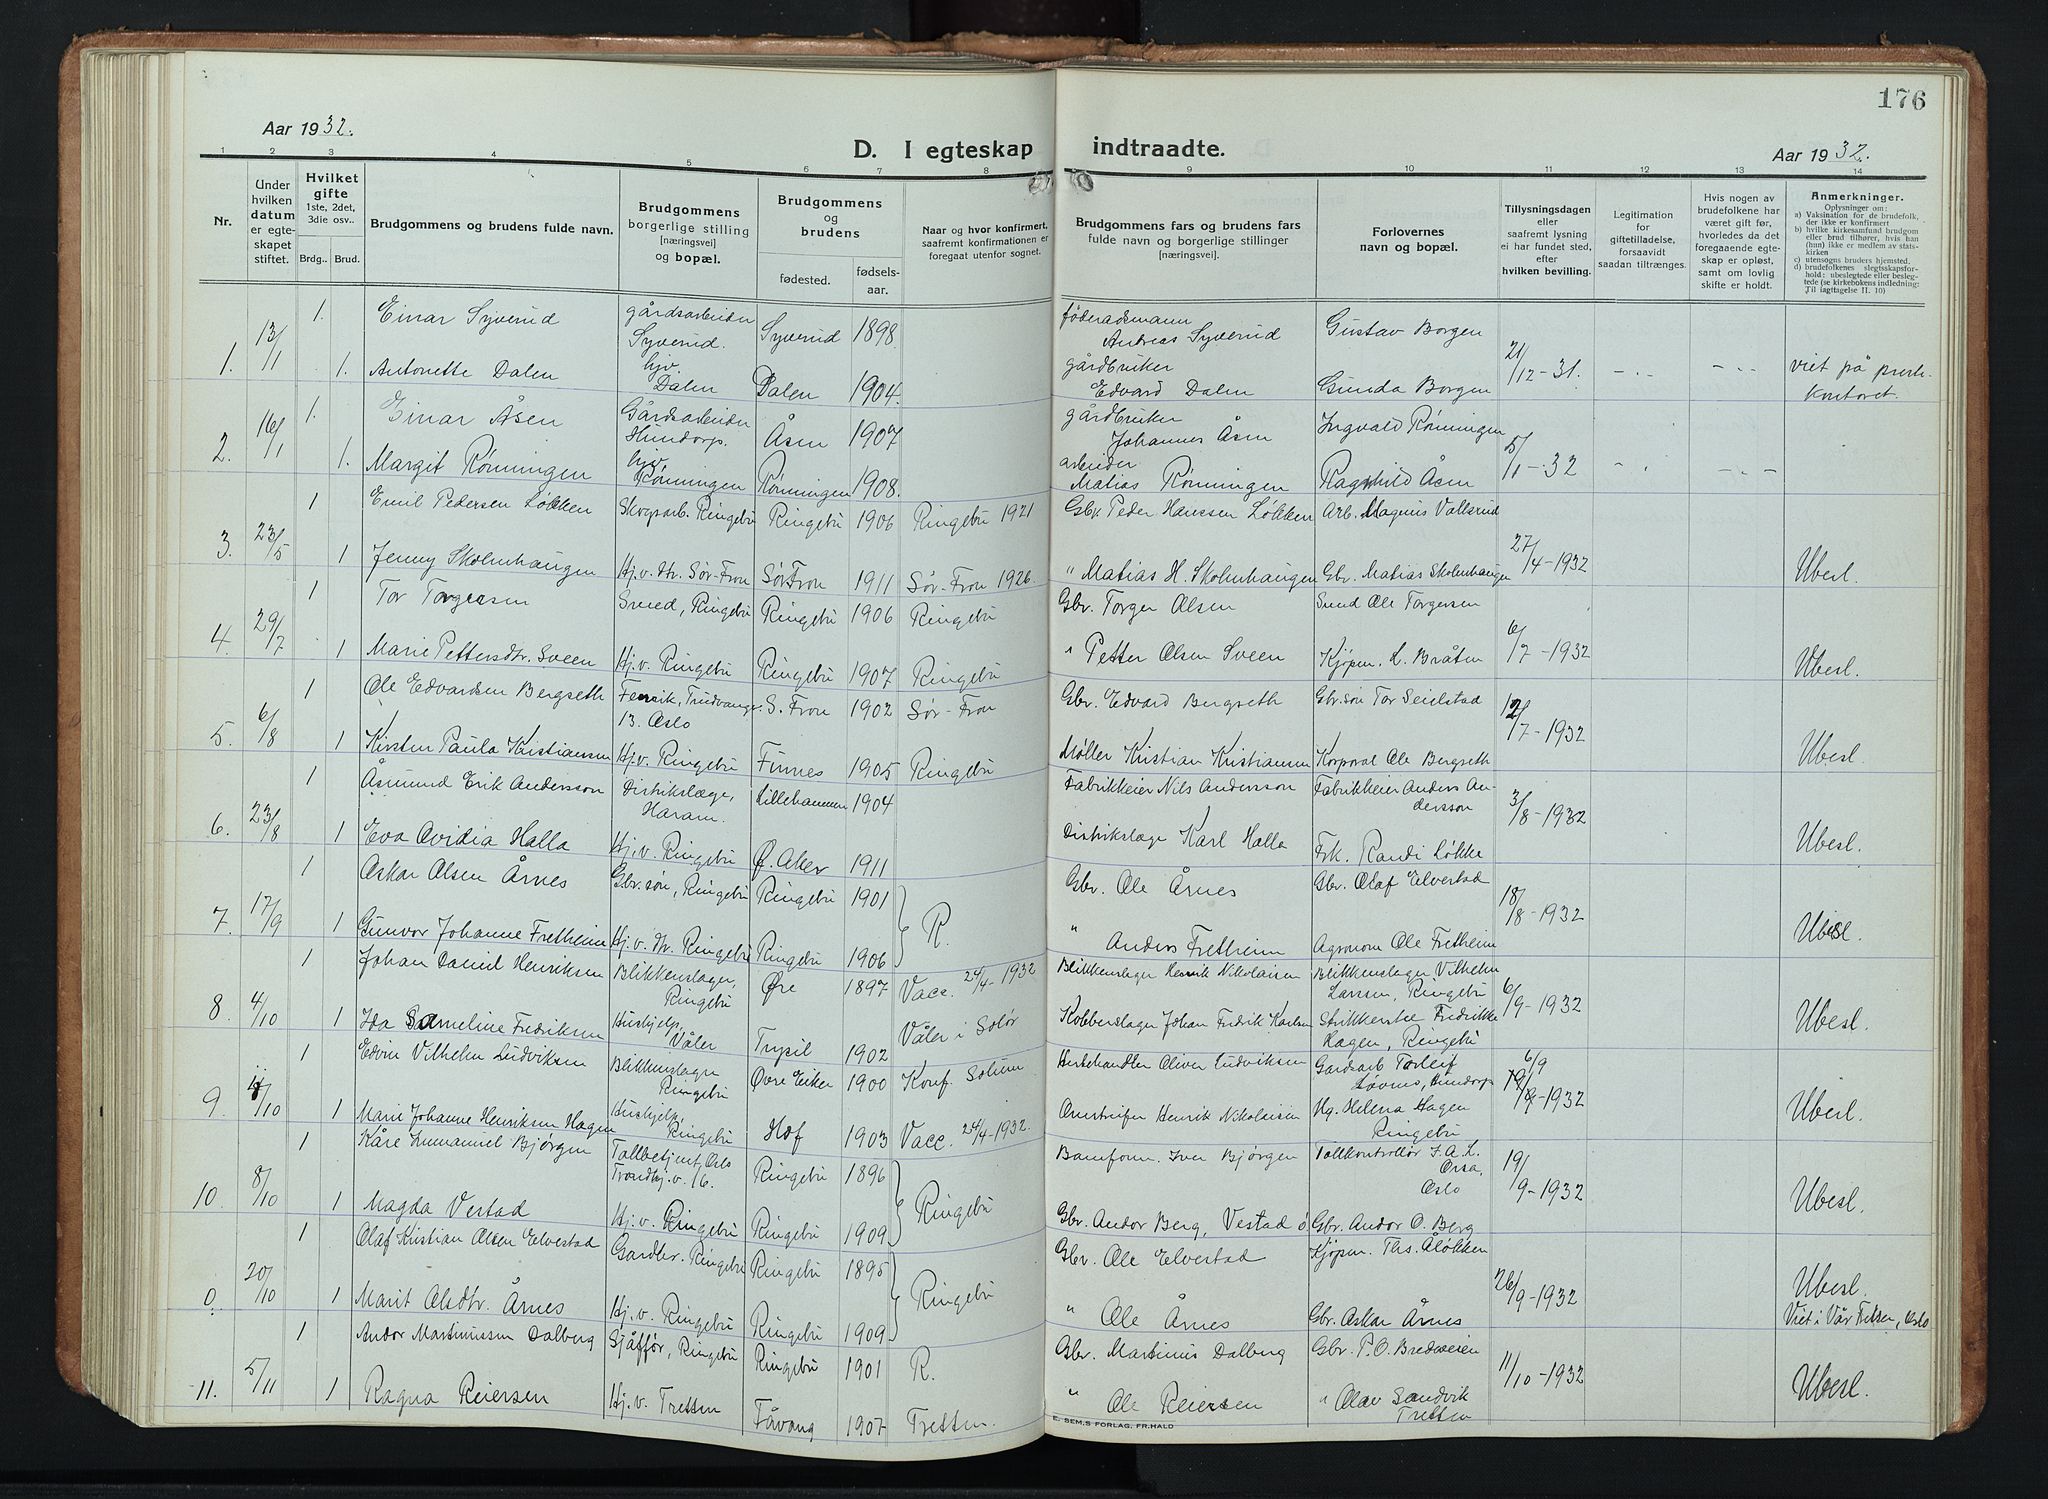 176
Aar 1932.
D. I egteskap indtraadte.
Aar 1932.
1 2 3 4 5 6 7 8 9 10 11 12 13 14
Nr.
Under hvilken datum er egteskapet stiftet.
Hvilket gifte 1ste, 2det, 3die osv..
Brdg.. Brud.
Brudgommens og brudens fulde navn.
Brudgommens borgerlige stilling [næringsvei] og bopæl.
Brudgommens og brudens
fødested. fødselsaar.
Naar og hvor konfirmert, saafremt konfirmationen er foregaat utenfor sognet.
Brudgommens fars og brudens fars fulde navn og borgerlige stillinger [næringsvei].
Forlovernes navn og bopæl.
Tillysningsdagen eller saafremt lysning ei har fundet sted, efter hvilken bevilling.
Legitimation for giftetilladelse, forsaavidt saadan tiltrænges.
Hvis nogen av brudefolkene har været gift før, hvorledes da det foregaaende egteskap er opløst, samt om lovlig skifte er holdt.
Anmerkninger.
Oplysninger om:
a) Vaksination for de brudefolk, der ikke er konfirmert
b) hvilke kirkesamfund brudgom eller brud tilhører, hvis han (hun) ikke er medlem av statskirken
c) utensogns bruders hjemsted.
d) brudefolkenes slegtsskapsforhold: ubeslegtede eller beslegtede (se kirkebokens indledning: Til iagttagelse II. 10)
1. 13/1 1. Einar Syverud gårdsarbeider Syverud. Syverud 1898 føderaadsmann Andreas Syverud Gustav Borgen 21/12-31. viet på prestekontoret.
1. Antonette Dalen hjv. Dalen Dalen 1904. gårdbruker Edvard Dalen Gunda Borgen
2. 16/1 1. Einar Åsen Gårdsarbeider Hundorp. Åsen 1907 gårdbruker Johannes Åsen Ingvald Rønningen 5/1-32
1. Margit Rønningen hjv. Rønningen Rønningen 1908. arbeider Matias Rønningen Ragnhild Åsen
3. 23/5 1 Emil Pedersen Løkken Skogsarb. Ringebu Ringebu 1906 Ringebu 1921 Gbr. Peder Hanssen Løkken Arb. Magnus Vallsrud 27/4-1932 Ubesl.
1 Jenny Skolmhaugen Hj.v. dtr. Sør-Fron Sør Fron 1911 Sør-Fron 1926. " Matias H. Skolmhaugen Gbr. Matias Skolmhaugen
4. 29/7 1 Tor Torgersen Smed, Ringebu Ringebu 1906 Ringebu Gbr. Torger Olsen Smed Ole Torgersen 6/7-1932 Ubesl.
1 Marie Pettersdtr. Sveen Hj.v. Ringebu Ringebu 1907 Ringebu " Petter Olsen Sveen Kjøpm. L. Bråten
5. 6/8 1 Ole Edvardsen Bergseth Fenrik, Trudvangv. 13. Oslo S. Fron 1902 Sør-Fron Gbr. Edvard Bergseth Gbr.søn Tor Seielstad 12/7-1932 Ubesl.
1 Kirsten Paula Kristiansen Hj.v. Ringebu Finnes 1905 Ringebu Møller Kristian Kristiansen Korporal Ole Bergseth
6. 23/8 1 Åsmund Erik Andersson Distrikslæge, Haram. Lillehammer 1904 Fabrikkeier Nils Andersson Fabrikkeier Anders Andersson 3/8-1932 Ubesl.
1 Eva Ovidia Halla Hj.v. Ringebu Ø. Aker 1911 Distrikslæge Karl Halla Frk. Randi Løkke
7. 17/9 1 Oskar Olsen Årnes Gbr.søn, Ringebu Ringebu 1901 R. Gbr. Ole Årnes Gbr. Olaf Elvestad 18/8-1932 Ubesl.
1 Gunvor Johanne Fretheim Hj.v. dtr. Ringebu Ringebu 1906 " Anders Fretheim Agronom Ole Fretheim
8. 4/10 1 Johan Daniel Henriksen Blikkenslager, Ringebu Øre 1897 Vacc. 24/4-1932 Blikkenslager Henrik Nikolaisen Blikkenslager Vilhelm Larssen, Ringebu 6/9-1932 Ubesl.
1 Ida Sameline Fredriksen Hushjelp, Våler Trysil 1902 Våler i Solør Kobberslager Johan Fredrik Karlsen Strikkerske Fredrikke Hagen, Ringebu
9. 4/10 1 Edvin Vilhelm Ludviksen Blikkenslager Ringebu Øvre Eiker 1900 Konf. Solum Hestehandler Oliver Ludviksen Gardsarb. Torleif Løvnes, Hundorp 6/9 19/9-1932 Ubesl.
1 Marie Johanne Henriksen Hagen Hushjelp, Ringebu Hof 1903 Vacc. 24/4-1932. Omstreifer Henrik Nikolaisen Ug. Helena Hagen Ringebu
10. 8/10 1 Kåre Immanuel Bjørgen Tollbetjent, Oslo Trondhj.v. 16. Ringebu 1896 Ringebu Banform. Iver Bjørgen Tollkontrollør J.A.L. Orsa, Oslo 19/9-1932 Ubesl.
1 Magda Vestad Hj.v. Ringebu Ringebu 1909 Gbr. Andor Berg, Vestad ø Gbr. Andor O. Berg
0. 20/10 1 Olaf Kristian Olsen Elvestad Gardbr. Ringebu Ringebu 1895 Ringebu Gbr. Ole Elvestad Kjøpm. Ths. Åløkken 26/9-1932 Ubesl. Viet i Vår Frelser, Oslo
1 Marit Olsdtr. Årnes Hj.v. Ringebu Ringebu 1909 " Ole Årnes Gbr. Oskar Årnes
11. 5/11 1 Andor Martinussen Dalberg Sjåffør, Ringebu Ringebu 1901 R. Gbr. Martinus Dalberg Gbr. P.O. Bredeveien 11/10-1932 Ubesl.
1 Ragna Reiersen Hj.v. Tretten Fåvang 1907 Tretten. " Ole Reiersen " Olav Sandvik Tretten
E. SEM,S FORLAG, FR.HALD